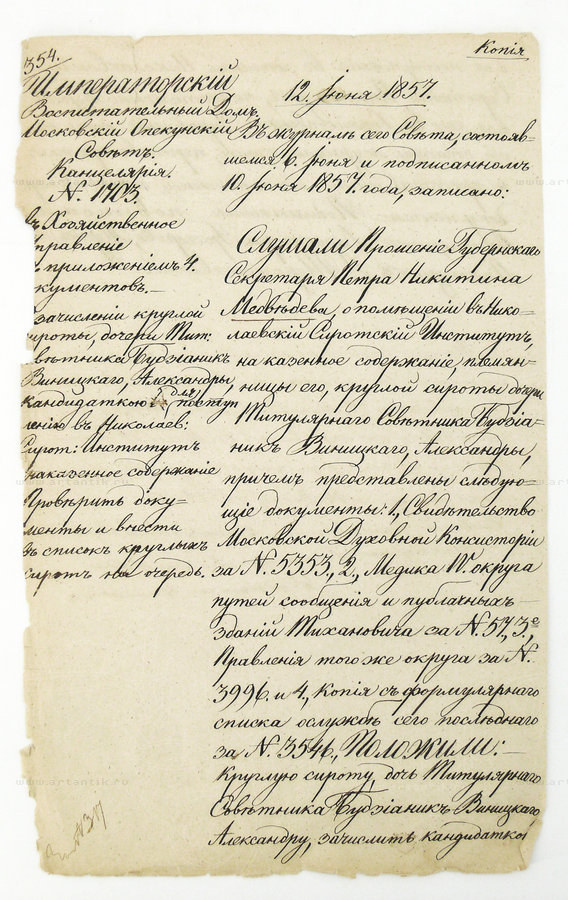 Копія
354.
Императорскій
Воспитательный Домъ.
Московскій Опекунскій
Совѣтъ.
Канцелярія.
N. 1703.
въ Хозяйственное
правленіе
приложеніемъ 4.
кументовъ.—
зачисленіи круглой
сироты, дочери Тит:
вѣтника Будзіаникъ
Виницкаго, Александры
кандидаткою для поступ
ленію въ Николаев:
Сирот: Институтъ
наказенное содержаніе
Провѣрить доку=
менты и внести
въ списокъ круглыхъ
сиротъ на очередь.
12. Іюня 1857.
Въ журналѣ сего Совѣта, состояв=
шемся 6. Іюня и подписанномъ
10. Іюня 1857. года, записано:
Слушали Прошеніе Губернскаго
Секретаря Петра Никитина
Медвѣдева, о помѣщеніи въ Нико=
лаевскій Сиротскій Институтъ,
на казенное содержаніе, племян=
ницы его, круглой сироты дочери
Титулярнаго Совѣтника Будзіа=
никъ Виницкаго, Александры,
причемъ представлены слѣдую=
щіе документы: 1, Свидѣтельство
Московской Духовной Консисторіи
за N. 5353., 2., Медика IV. округа
путей сообщенія и публичныхъ
зданій Тихановича за N. 57, 3е,
Правленія того же округа за N.
3996. и 4, Копія съ формулярнаго
списка ослужбѣ сего послѣдняго
за N. 3546., Положили:—
Круглую сироту, дочь Титулярнаго
Совѣтника Будзіаникъ Виницкаго
Александру, зачислить кандидатко
www.artantik.ru